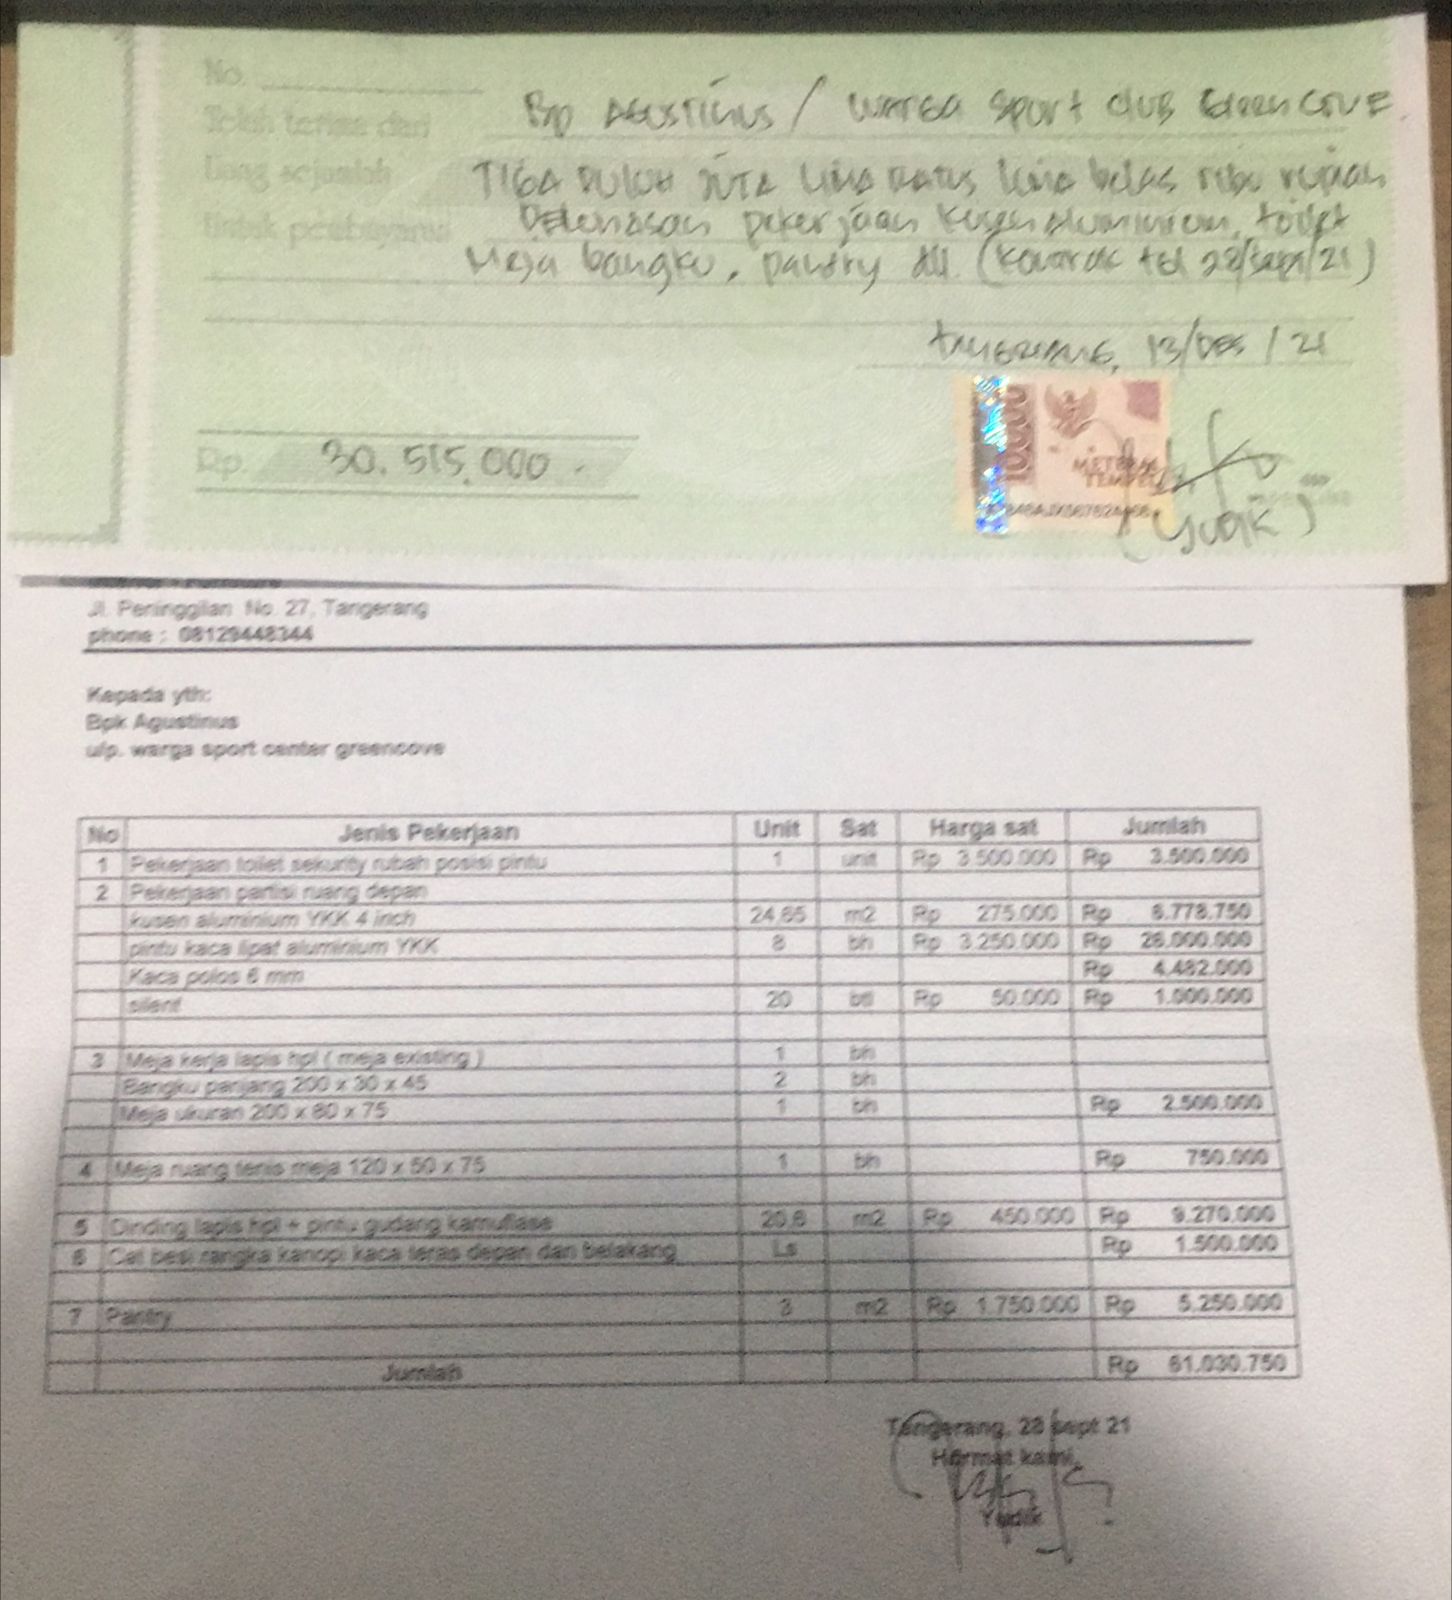 No.
Telah terima dari Bp Agustinus / WARGA Sport CLUB Green COVE
Uang sejumlah TIGA PULUH JUTA LIMA RATUS lima belas ribu rupiah
Untuk pembayaran Pelunasan pekerjaan Kusen Aluminium, toilet
Meja bangku, pantry dll. (Kontrak tgl 28/sept/21)
TANGERANG, 13/DES/21
Rp. 30.515.000
10000
METERAI
TEMPEL
(Yudik)
Jl. Peninggilan No. 27, Tangerang
phone : 08129448344
Kepada yth:
Bpk Agustinus
u/p. warga sport center greencove
No Jenis Pekerjaan Unit Sat Harga sat Jumlah
1 Pekerjaan toilet sekurity rubah posisi pintu 1 unit Rp 3.500.000 Rp 3.500.000
2 Pekerjaan partisi ruang depan
kusen aluminium YKK 4 inch 24,65 m2 Rp 275.000 Rp 6.778.750
pintu kaca lipat aluminium YKK 8 bh Rp 3.250.000 Rp 26.000.000
Kaca polos 6 mm Rp 4.482.000
silent 20 btl Rp 50.000 Rp 1.000.000
3 Meja kerja lapis hpl ( meja existing ) 1 bh
Bangku panjang 200 x 30 x 45 2 bh
Meja ukuran 200 x 80 x 75 1 bh Rp 2.500.000
4 Meja ruang tenis meja 120 x 50 x 75 1 bh Rp 750.000
5 Dinding lapis hpl + pintu gudang kamuflase 20,6 m2 Rp 450.000 Rp 9.270.000
6 Cat besi rangka kanopi kaca teras depan dan belakang Ls Rp 1.500.000
7 Pantry 3 m2 Rp 1.750.000 Rp 5.250.000
Jumlah Rp 61.030.750
Tangerang, 28 sept 21
Hormat kami,
Yudik